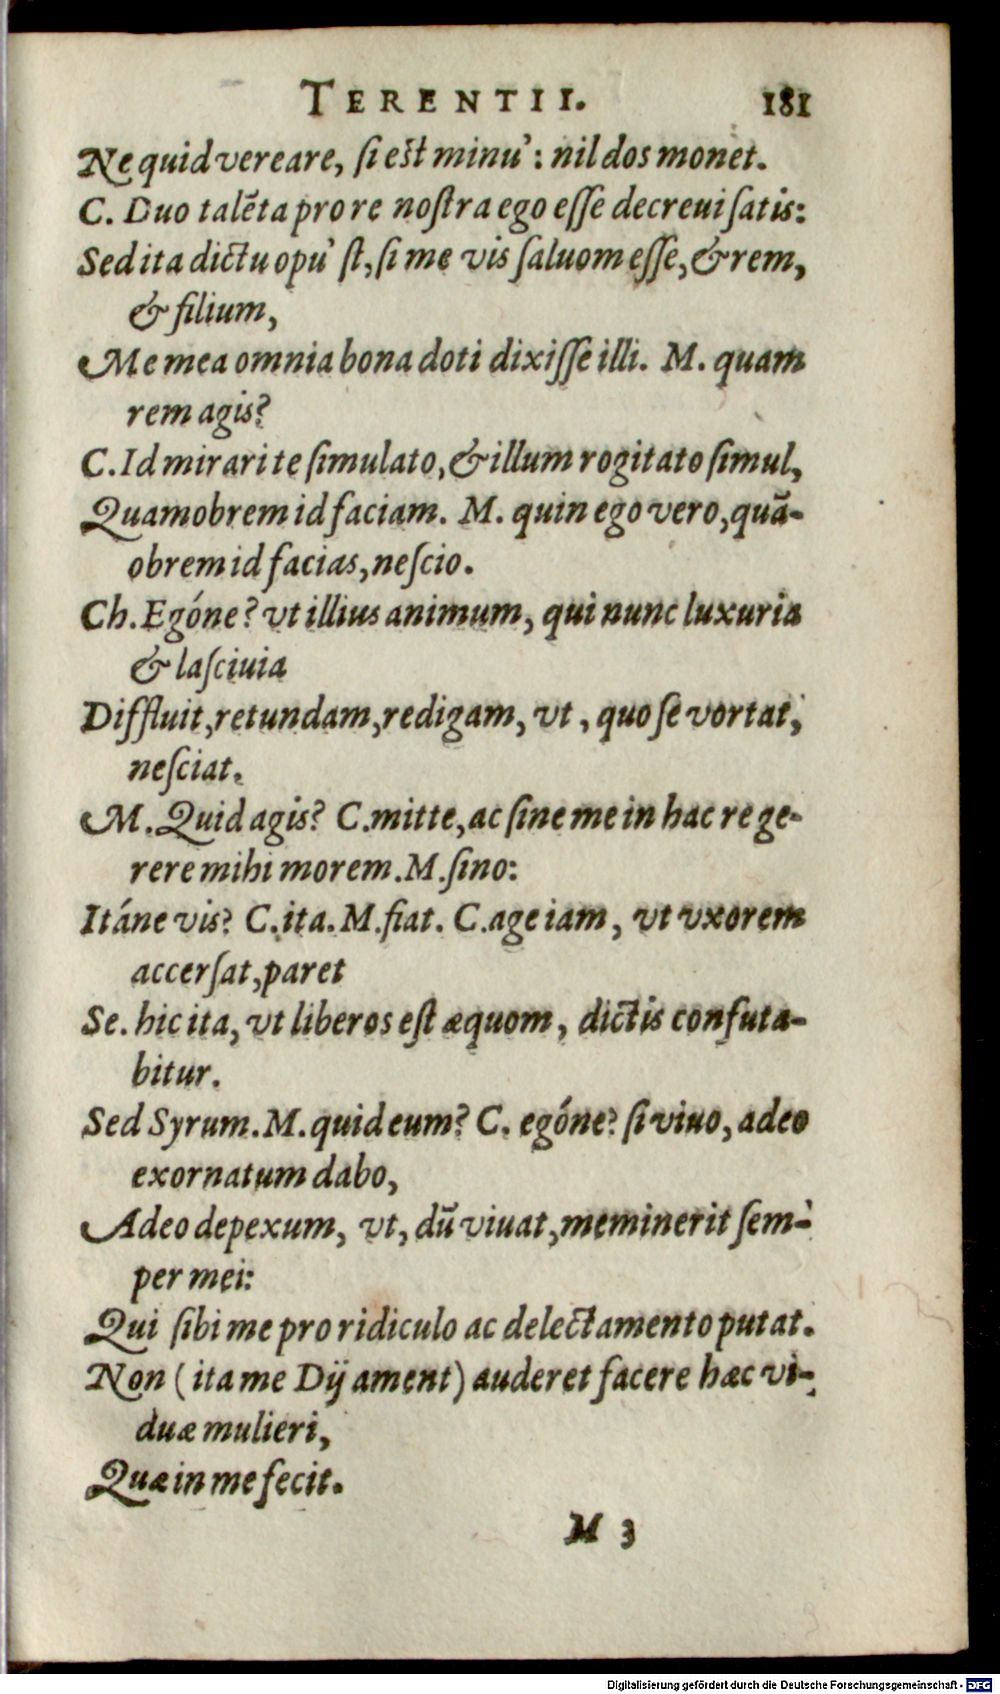 TERENTII. 181
Ne quid vereare, ſi eſt minu': nil dos monet.
C. Duo talēta pro re noſtra ego eſſe decreui ſatis:
Sed ita dictu opu' ſt, ſi me vis ſaluom eſſe, & rem,
& filium,
Me mea omnia bona doti dixiſſe illi. M. quam
rem agis?
C. Id mirari te ſimulato, & illum rogitato ſimul,
Quamobrem id faciam. M. quin ego vero, quā-
obrem id facias, neſcio.
Ch. Egóne? vt illius animum, qui nunc luxuria
& laſciuia
Diffluit, retundam, redigam, vt, quo ſe vortat,
neſciat.
M. Quid agis? C. mitte, ac ſine me in hac re ge-
rere mihi morem. M. ſino:
Itáne vis? C. ita. M. fiat. C. age iam, vt vxorem
accerſat, paret
Se. hic ita, vt liberos eſt æquom, dictis confuta-
bitur.
Sed Syrum. M. quid eum? C. egóne? ſi viuo, adeo
exornatum dabo,
Adeo depexum, vt, dū viuat, meminerit ſem-
per mei:
Qui ſibi me pro ridiculo ac delectamento putat.
Non (ita me Dij ament) auderet facere hæc vi-
duæ mulieri,
Quæ in me fecit.
M 3
Digitalisierung gefördert durch die Deutsche Forschungsgemeinschaft - DFG